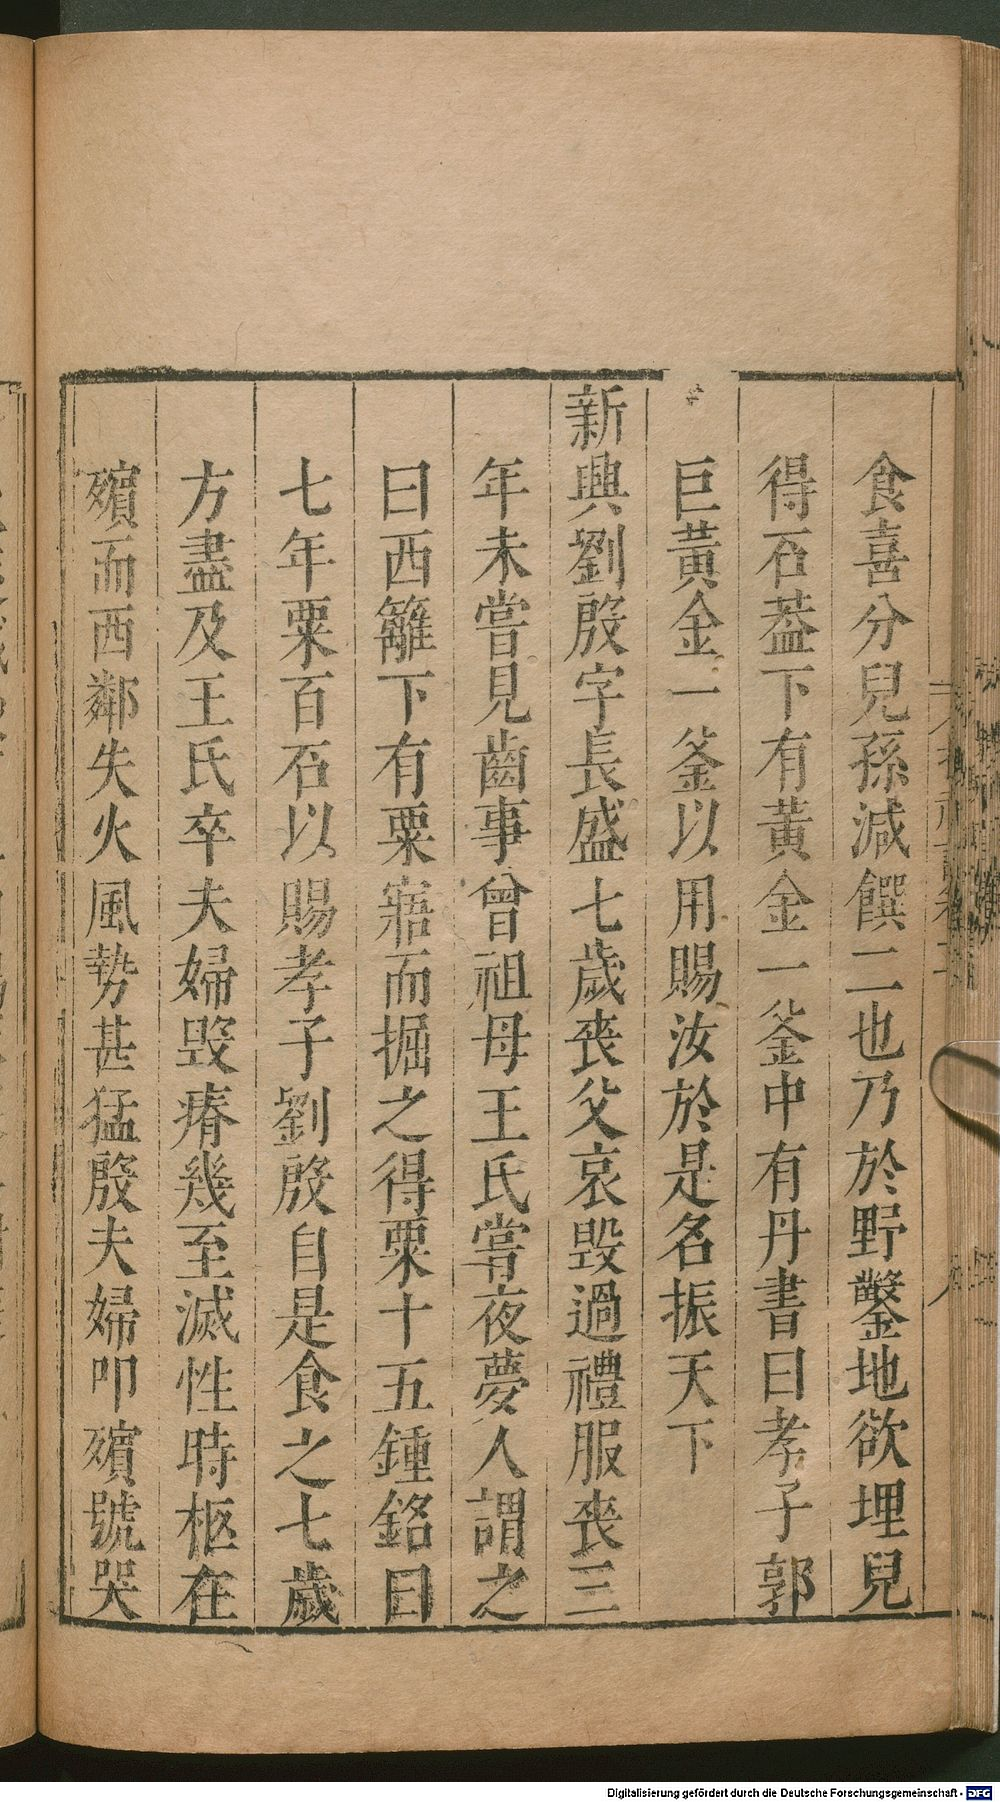 食喜分兒孫減饌二也乃於野鑿地欲埋兒
得石葢下有黃金一釜中有丹書曰孝子郭
巨黃金一釜以用賜汝於是名振天下
新興劉殷字長盛七歲喪父哀毀過禮服喪三
年未嘗見齒事曾祖母王氏嘗夜夢人謂之
曰西籬下有粟寤而掘之得粟十五鍾銘曰
七年粟百石以賜孝子劉殷自是食之七歲
方盡及王氏卒夫婦毀瘠幾至滅性時柩在
殯而西鄰失火風勢甚猛殷夫婦叩殯號哭
Digitalisierung gefördert durch die Deutsche Forschungsgemeinschaft - DFG